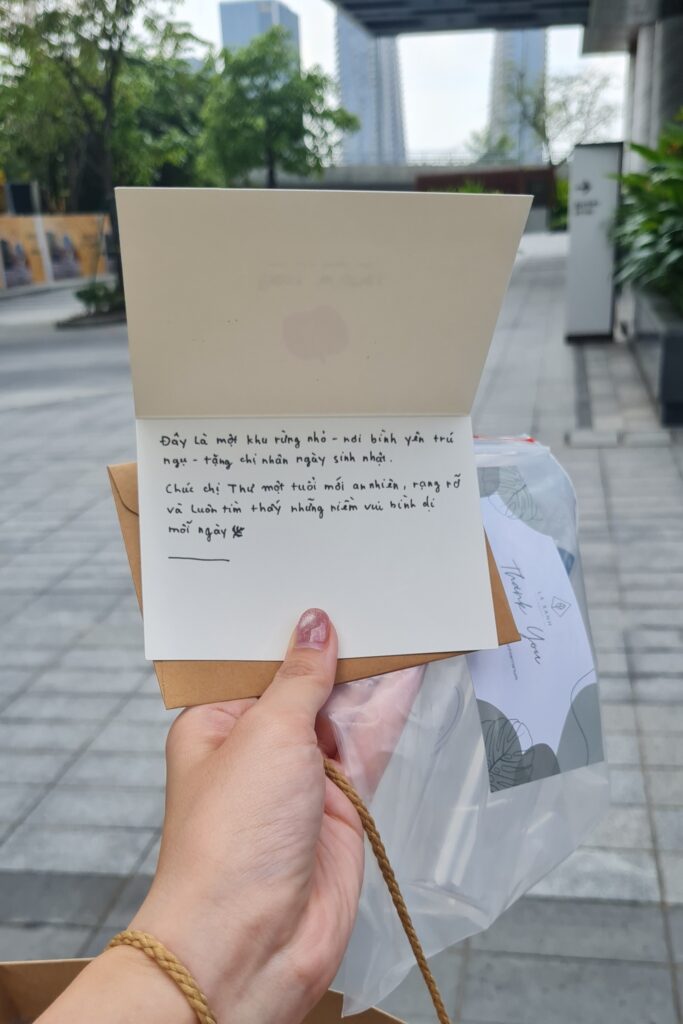 Đây là một khu rừng nhỏ - nơi bình yên trú
ngụ - tặng chị nhân ngày sinh nhật.
Chúc chị Thư một tuổi mới an nhiên, rạng rỡ
và luôn tìm thấy những niềm vui bình dị
mỗi ngày
Thank You